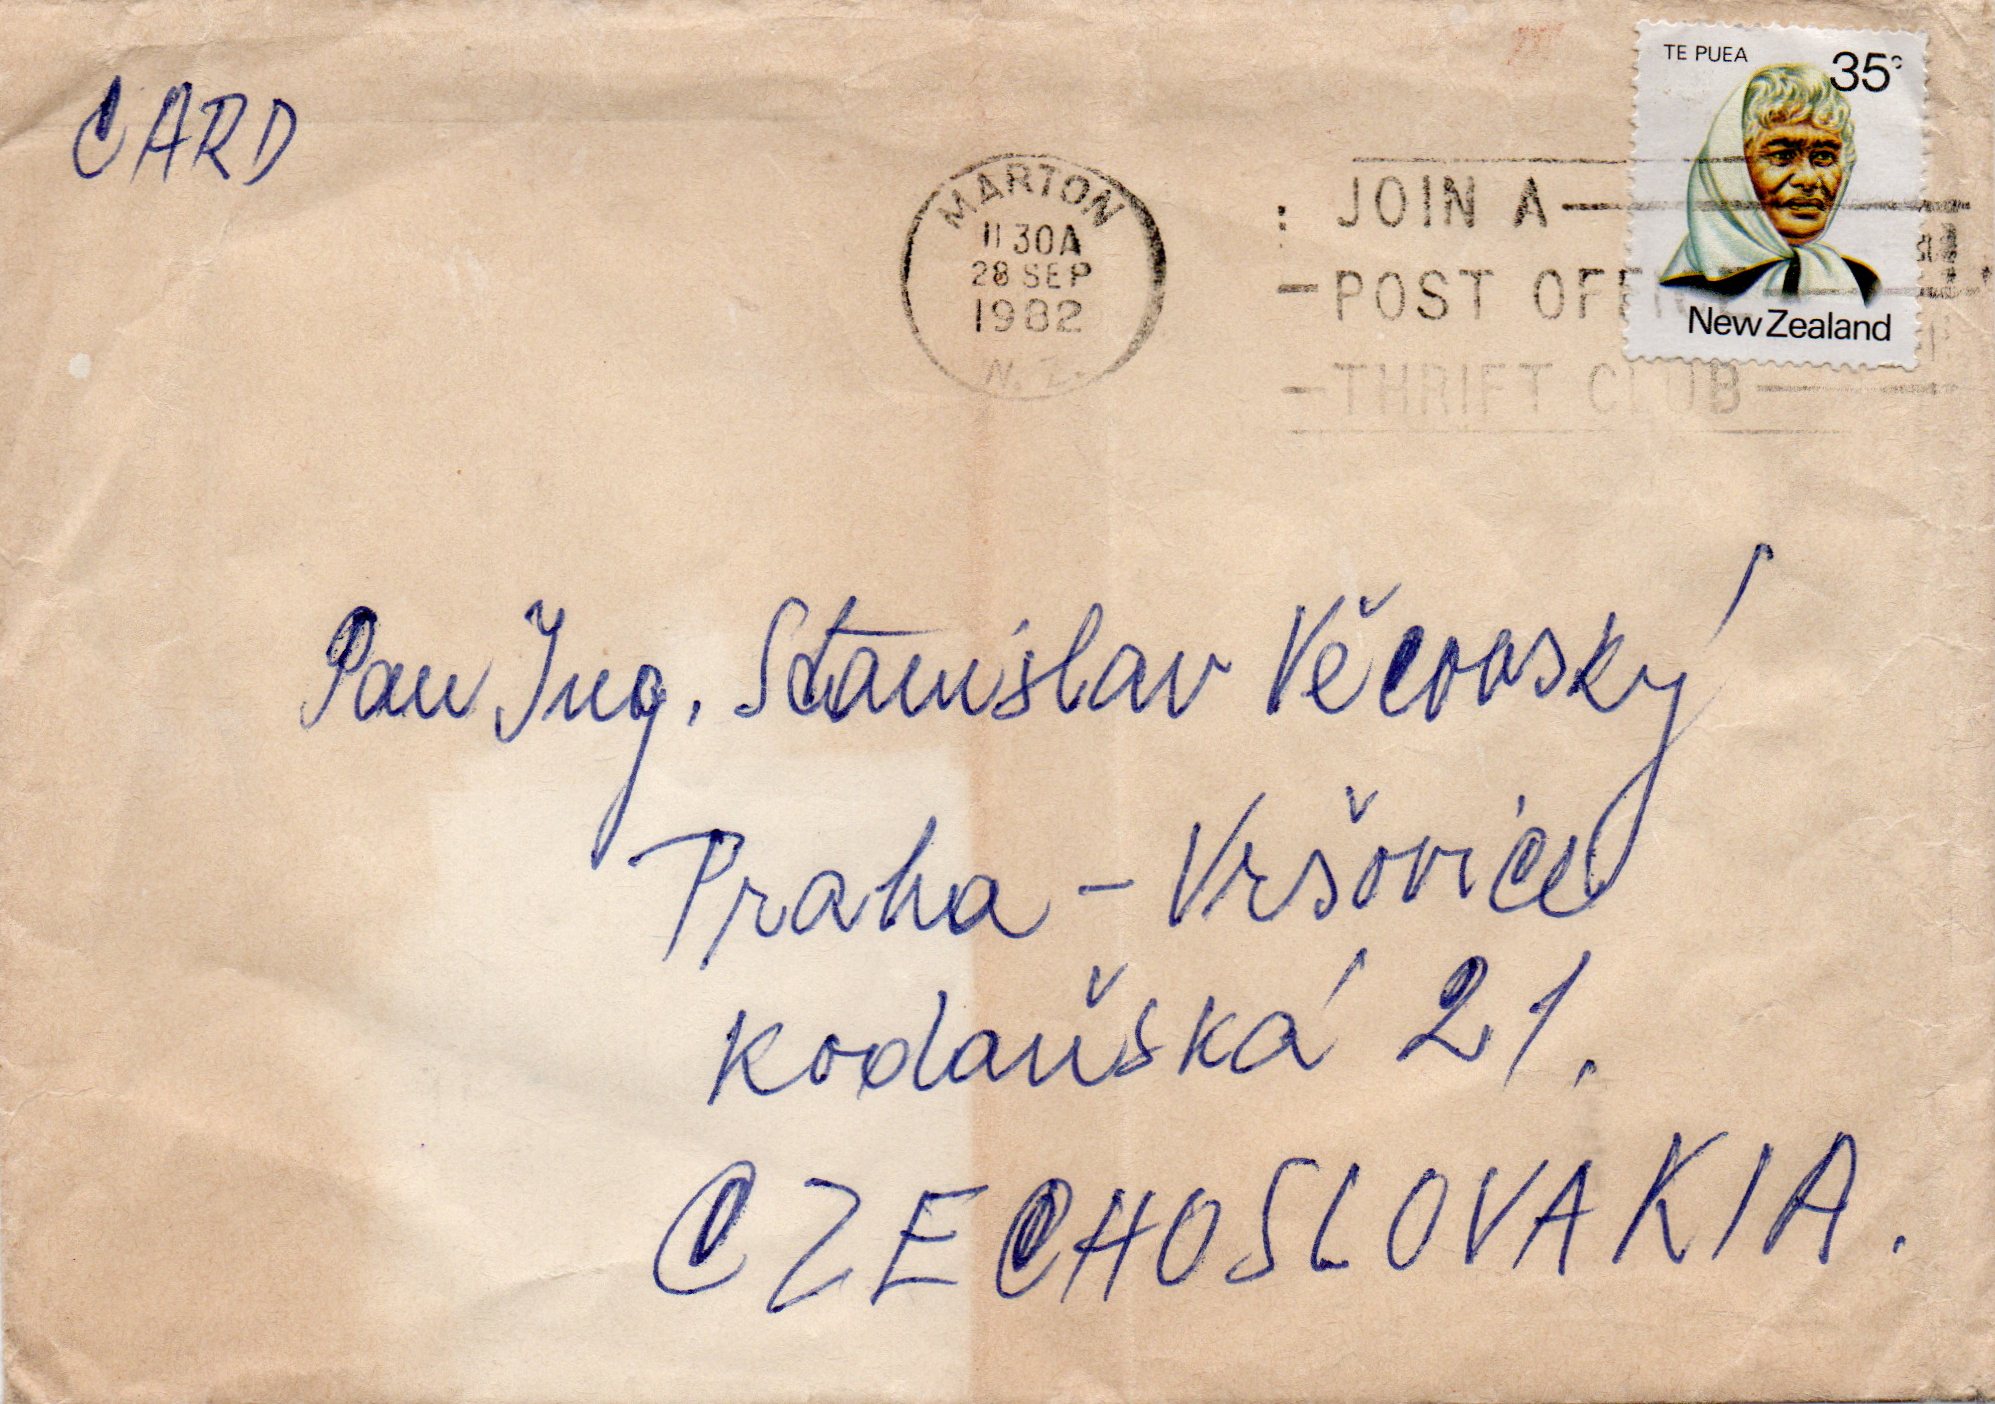 CARD
TE PUEA 35c
New Zealand
MARTON
11 30A
28 SEP
1982
N.Z.
JOIN A
POST OFFICE
THRIFT CLUB
Pan Ing. Stanislav Věcovský
Praha - Vršovice
Kodaňská 21.
CZECHOSLOVAKIA.